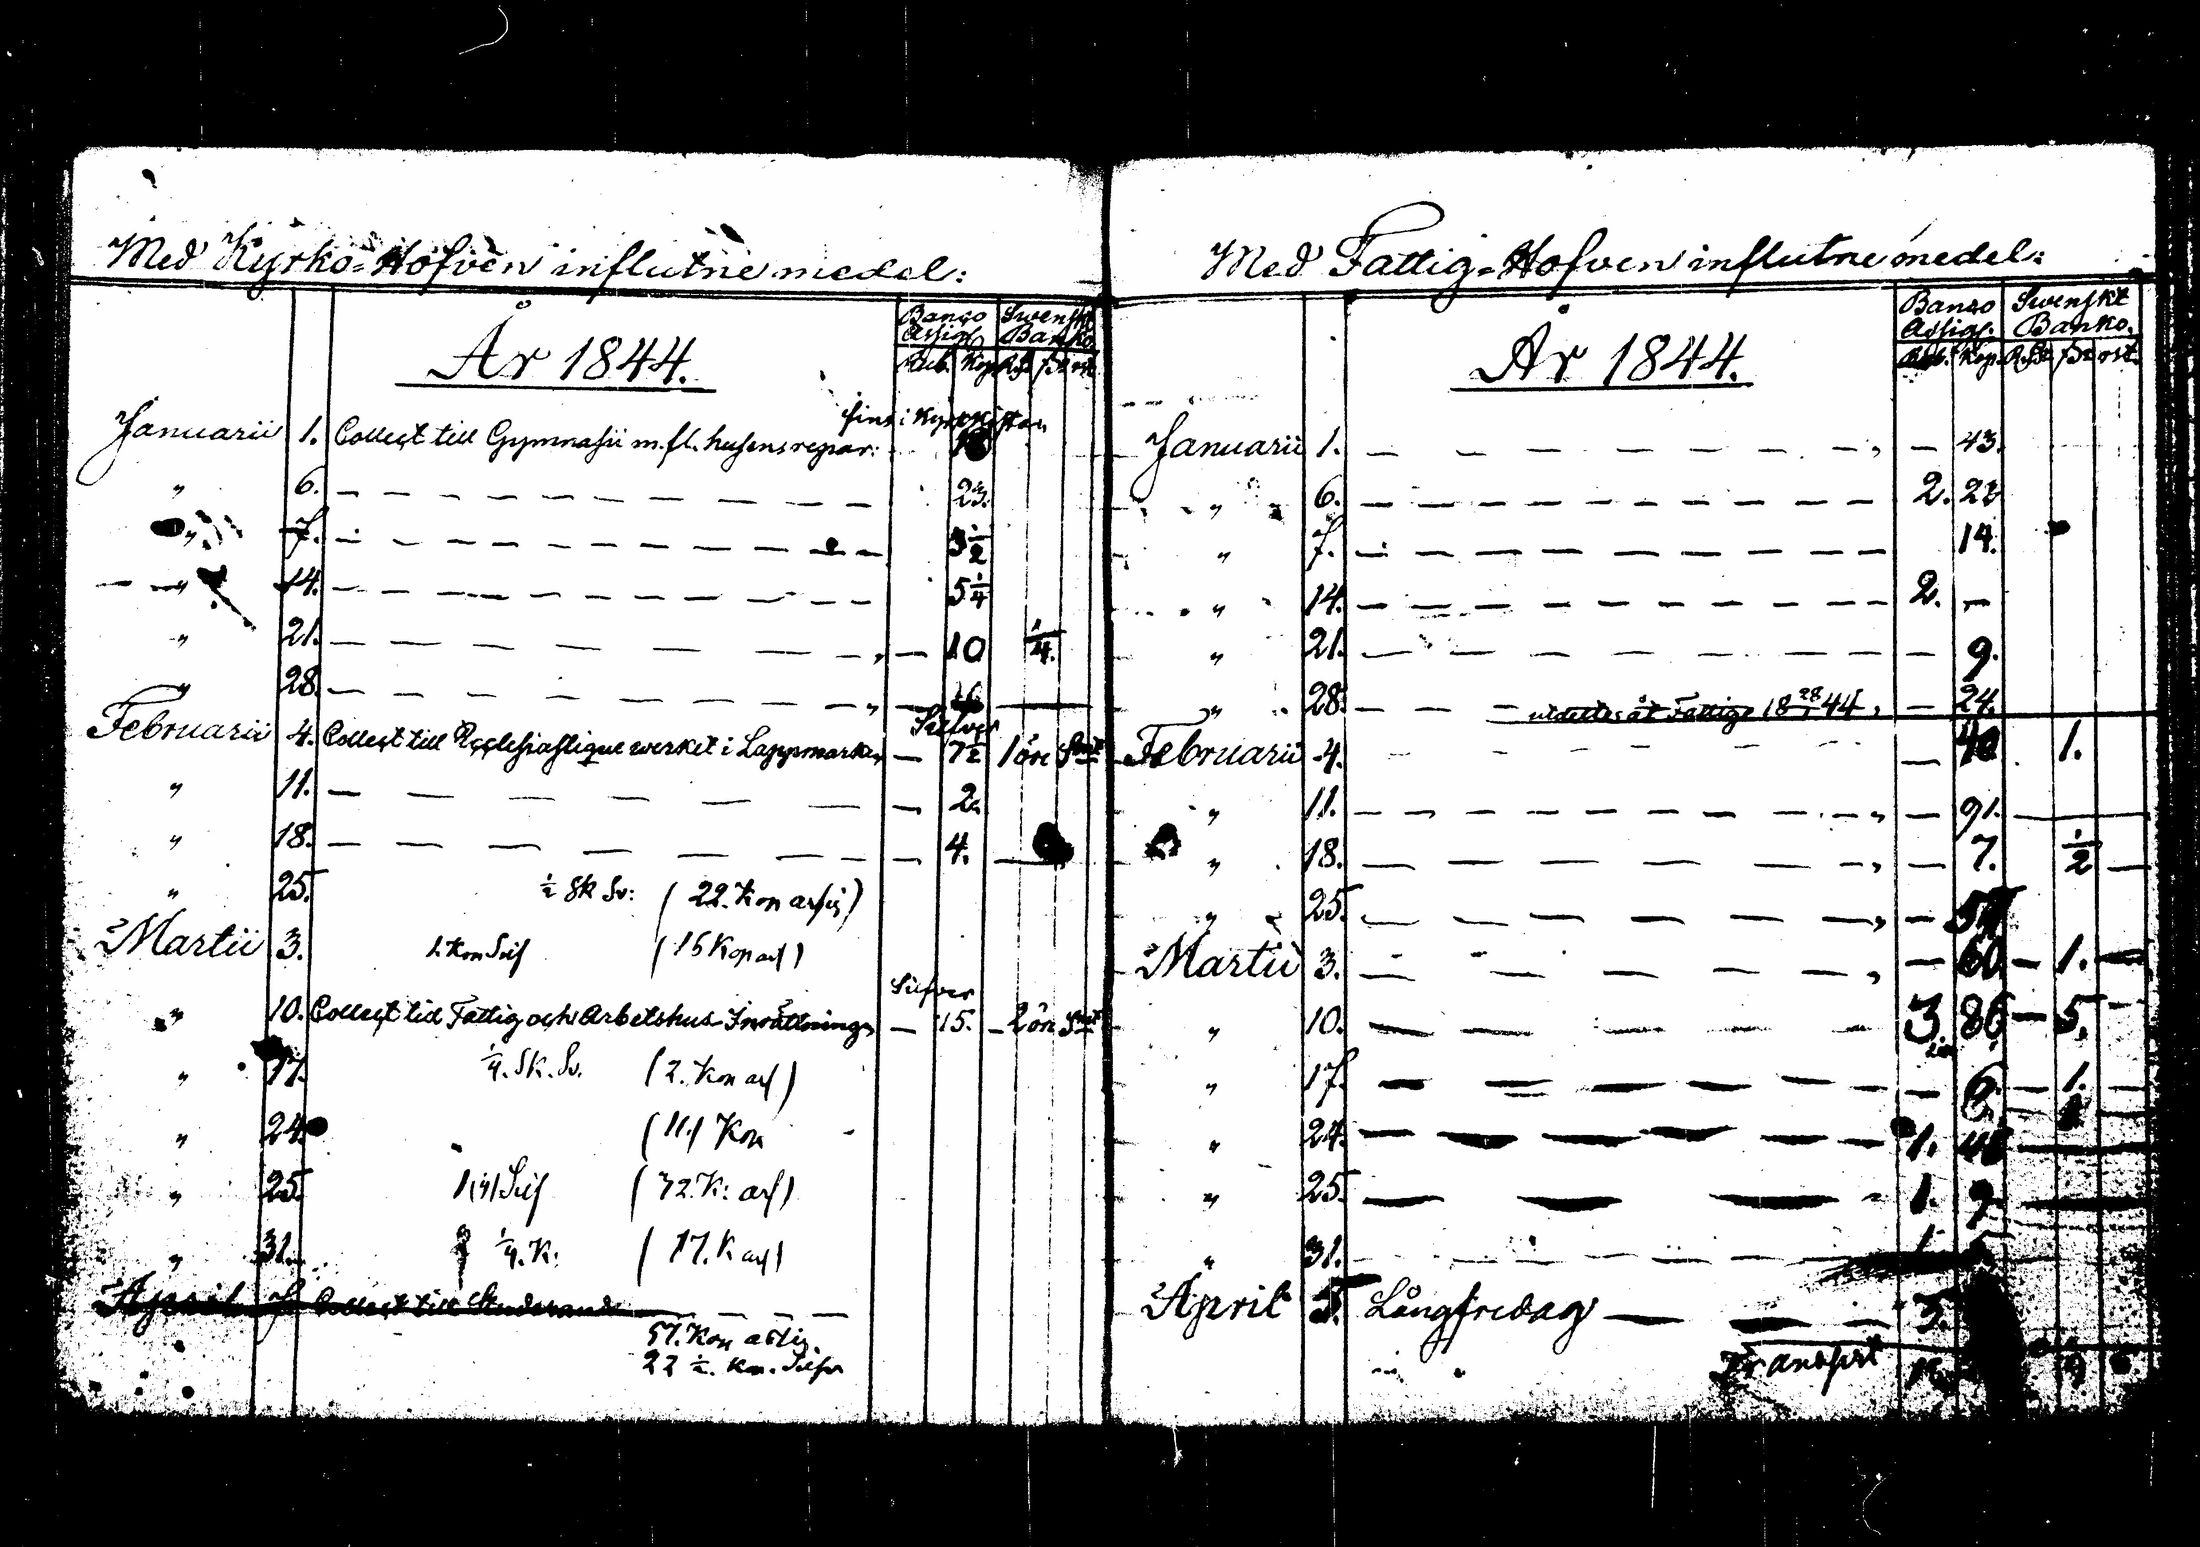 Med Kyrko-Hofven influtne medel:
Banco Assign. Swenskt Banko.
År 1844.
Rub. Kop. R.d. sk. rst.
fins i Kyrkkistan
Januarii 1. Collect till Gymnasii m. fl. husens repar:
" 6. — — — — — — — — 23.
" 7. — — — — — — — — 3½
" 14. — — — — — — — — 5¼
" 21. — — — — — — — " — 10 ¼.
" 28. — — — — — — — " —
Silfver
Februarii 4. Collect till Ecclesiastique werket i Lappmarken — 7½ 1 öre Smt
" 11. — — — — — — — — 2.
" 18. — — — — — — — — 4. —
" 25. ½ Sk Sv: (22. Kop assig)
Martii 3. 1. Kop Silf (15 Kop as)
Silfver
" 10. Collect till Fattig och Arbetshus-Inrättning, — 15. — 2 öre Smt
" 17. ¼. Sk. Sv. (2. Kop as)
" 24. (11) Kop
" 25. Silf (72. K: as)
" 31. ¼. K: (17. K as)
April 7. Collect till Studerande — — —
57. Kop assig.
22 ½. Kop. Silfv
Med Fattig-Hofven influtne medel:
Banco Assign. Swenskt Banko.
År 1844.
Rub. Kop. R.d. sk. rst.
Januarii 1. — — — — — — — " — 43.
" 6. — — — — — — — — 2. 23
" 7. — — — — — — — — 14.
" 14. — — — — — — — — 2. —
" 21. — — — — — — — — 9.
" 28. — utdeltes åt Fattige 18 28/1 44, — 24.
Februarii 4. — — — — — 40 1.
" 11. — — — — — — — " — 91. —
" 18. — — — — — — — " — 7. ½ —
" 25. — — — — — — — " —
Martii 3. — — — — — — — " — 60 — 1. —
" 10. — — — — — — 3. 86 — 5. —
" 17. — — — — — — 6. — 1. —
" 24. — — — — — — 1.
" 25. — — — " 1. 9
" 31. — — — — — — — —
April 5. Långfredag — — — " 3.
Transport